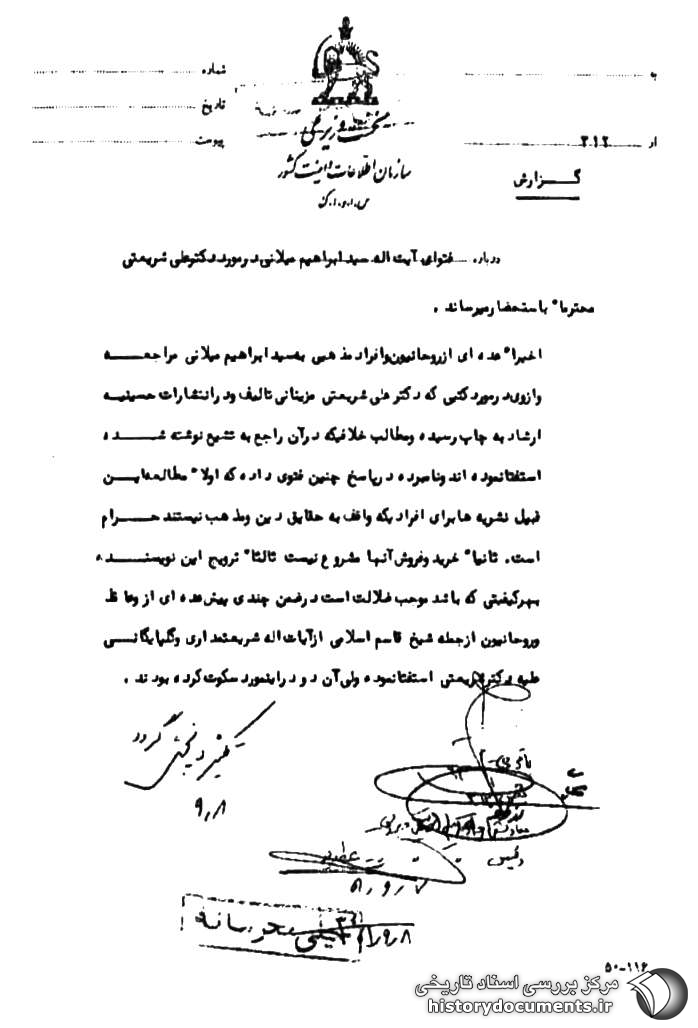 به
شماره
تاریخ
از ۳۱۲
پیوست
نخست وزیری
سازمان اطلاعات و امنیت کشور
س.ا.و.ا.ک
گزارش
درباره فتوای آیت اله سید ابراهیم میلانی در مورد دکتر علی شریعتی
محترما" باستحضار میرساند .
اخیرا" عده ای از روحانیون و افراد مذهبی به سید ابراهیم میلانی مراجعه
و از وی در مورد کتبی که دکتر علی شریعتی مزینانی تالیف و در انتشارات حسینیه
ارشاد به چاپ رسیده و مطالب خلافیکه در آن راجع به تشیع نوشته شده
استفتا نموده اند و نامبرده در پاسخ چنین فتوی داده که اولا" مطالعه این
قبیل نشریه ها برای افرادیکه واقف به حقایق دین و مذهب نیستند حرام
است. ثانیا" خرید و فروش آنها مشروع نیست ثالثا" ترویج این نویسنده
بهر کیفیتی که باشد موجب ضلالت است در ضمن چندی پیش عده ای از وعاظ
و روحانیون از جمله شیخ قاسم اسلامی از آیات اله شریعتمداری و گلپایگانی
علیه دکتر شریعتی استفتا نموده ولی آن دو در اینمورد سکوت کرده بودند .
گردد
۹٫۸
رئیس
خیلی محرمانه
۵۰-۱۱۶
مرکز بررسی اسناد تاریخی
historydocuments.ir